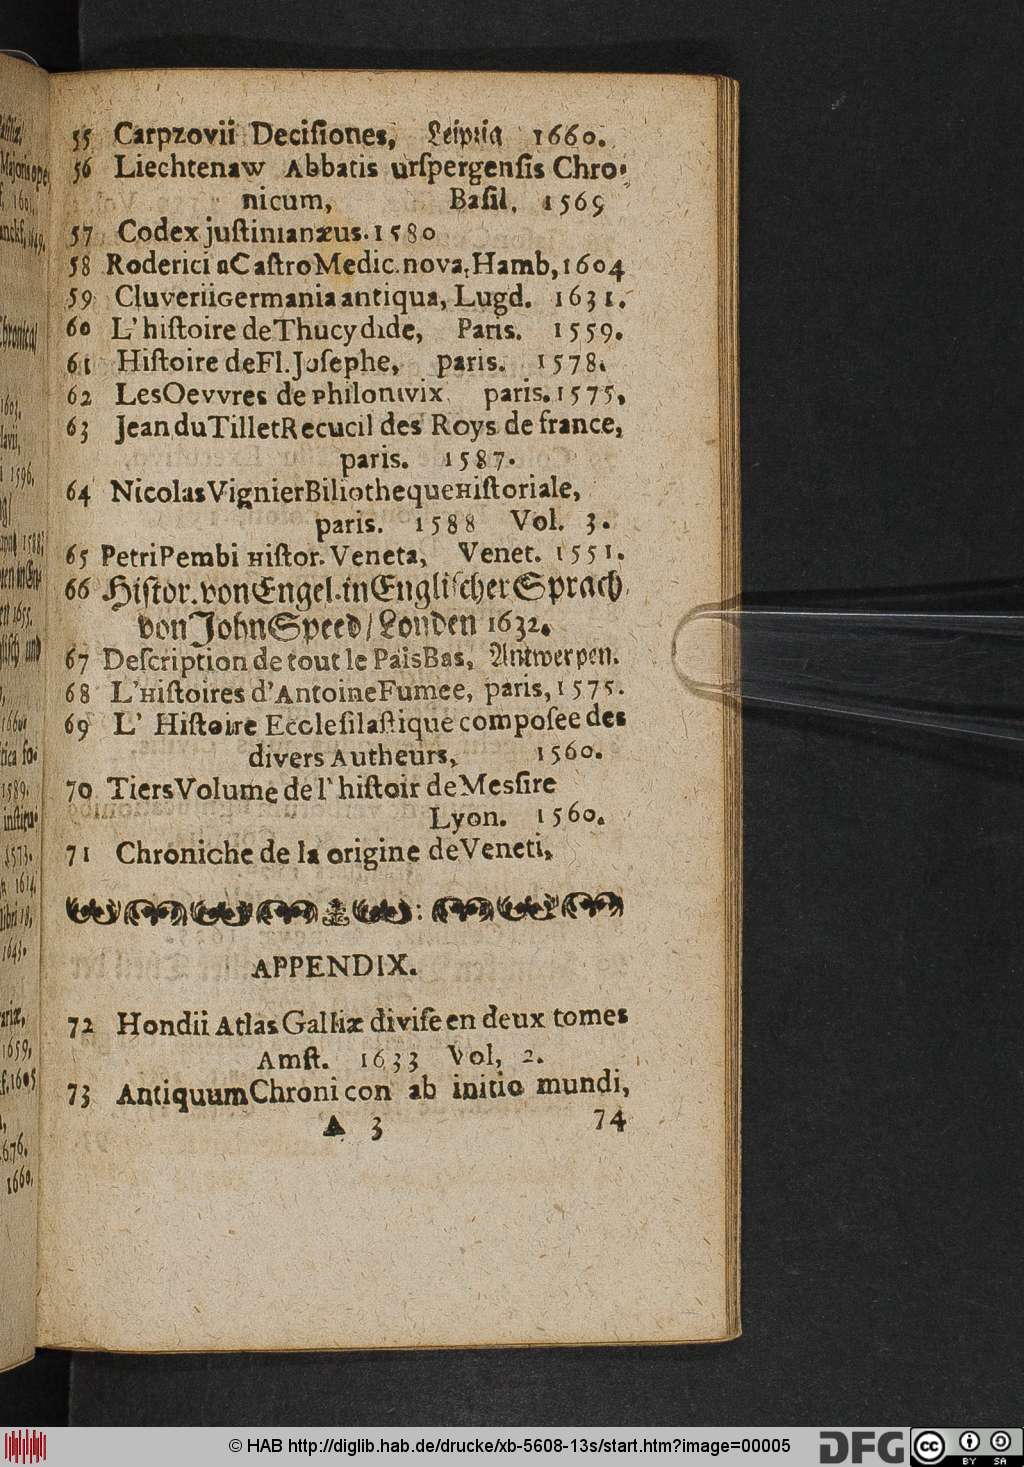 55 Carpzovii Decisiones, Leipzig 1660.
56 Liechtenaw Abbatis urspergensis Chro-
nicum, Basil, 1569
57 Codex justinianæus. 1580
58 Roderici a Castro Medic. nova, Hamb, 1604
59 Cluverii Germania antiqua, Lugd. 1631.
60 L' histoire de Thucydide, Paris. 1559.
61 Histoire de Fl. Josephe, paris. 1578.
62 Les Oevvres de Philon Ivix, paris. 1575,
63 Jean du Tillet Recucil des Roys de france,
paris. 1587.
64 Nicolas Vignier Biliotheque Historiale,
paris. 1588 Vol. 3.
65 Petri Pembi Histor. Veneta, Venet. 1551.
66 Histor. von Engel. in Englischer Sprach,
von John Speed / Londen 1632.
67 Description de tout le Pais Bas, Antwerpen.
68 L'Histoires d'Antoine Fumee, paris, 1575.
69 L' Histoire Ecclesilastique composee des
divers Autheurs, 1560.
70 Tiers Volume de l' histoir de Messire
Lyon. 1560.
71 Chroniche de la origine de Veneti,
APPENDIX.
72 Hondii Atlas Galliæ divise en deux tomes
Amst. 1633 Vol, 2.
73 Antiquum Chronicon ab initio mundi,
A 3 74
© HAB http://diglib.hab.de/drucke/xb-5608-13s/start.htm?image=00005
DFG
cc BY SA